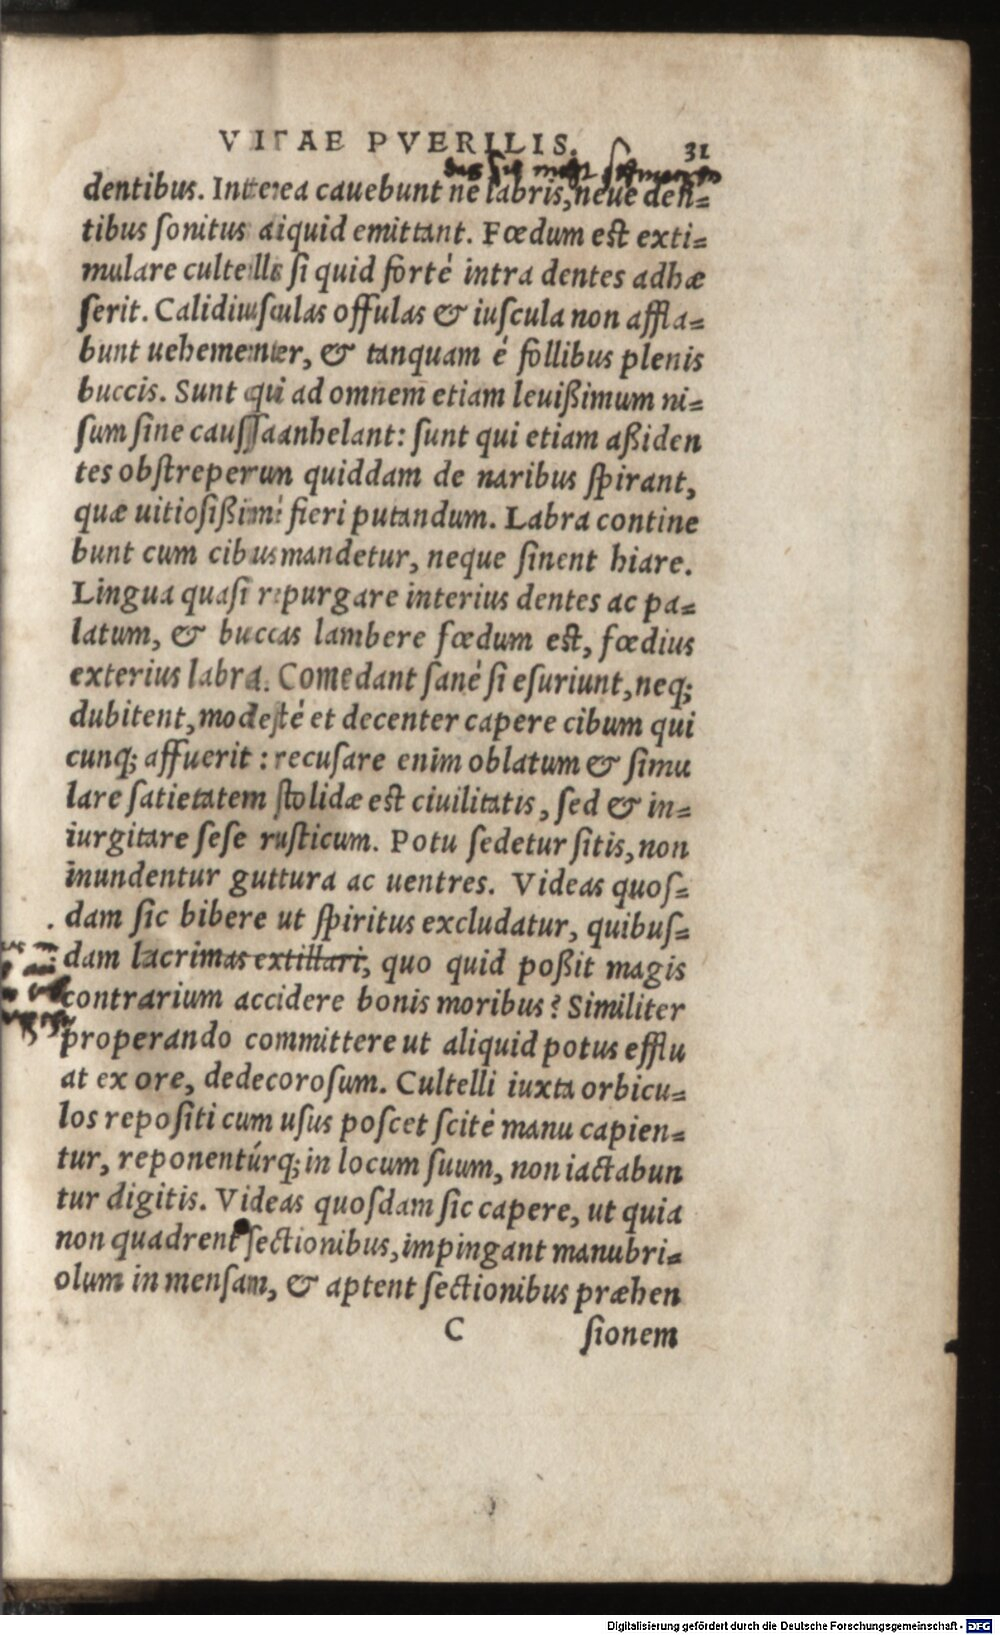 VITAE PVERILIS. 31
das sie nicht
dentibus. Interea cauebunt ne labris, neue den=
tibus sonitus aliquid emittant. Fœdum est exti=
mulare cultello si quid forté intra dentes adhæ
serit. Calidiusculas offulas & iuscula non affla=
bunt uehementer, & tanquam é follibus plenis
buccis. Sunt qui ad omnem etiam leuißimum ni=
sum sine caussa anhelant: sunt qui etiam aßiden
tes obstreperum quiddam de naribus spirant,
quæ uitiosißimé fieri putandum. Labra contine
bunt cum cibus mandetur, neque sinent hiare.
Lingua quasi repurgare interius dentes ac pa=
latum, & buccas lambere fœdum est, fœdius
exterius labra. Comedant sané si esuriunt, neq;
dubitent, modesté et decenter capere cibum qui
cunq; affuerit : recusare enim oblatum & simu
lare satietatem stolidæ est ciuilitatis, sed & in=
iurgitare sese rusticum. Potu sedetur sitis, non
inundentur guttura ac uentres. Videas quos=
dam sic bibere ut spiritus excludatur, quibus=
dam lacrimas extillari, quo quid poßit magis
contrarium accidere bonis moribus? Similiter
properando committere ut aliquid potus efflu
at ex ore, dedecorosum. Cultelli iuxta orbicu=
los repositi cum usus poscet scité manu capien=
tur, reponentúrq; in locum suum, non iactabun
tur digitis. Videas quosdam sic capere, ut quia
non quadrent sectionibus, impingant manubri=
olum in mensam, & aptent sectionibus præhen
C sionem
Digitalisierung gefördert durch die Deutsche Forschungsgemeinschaft - DFG